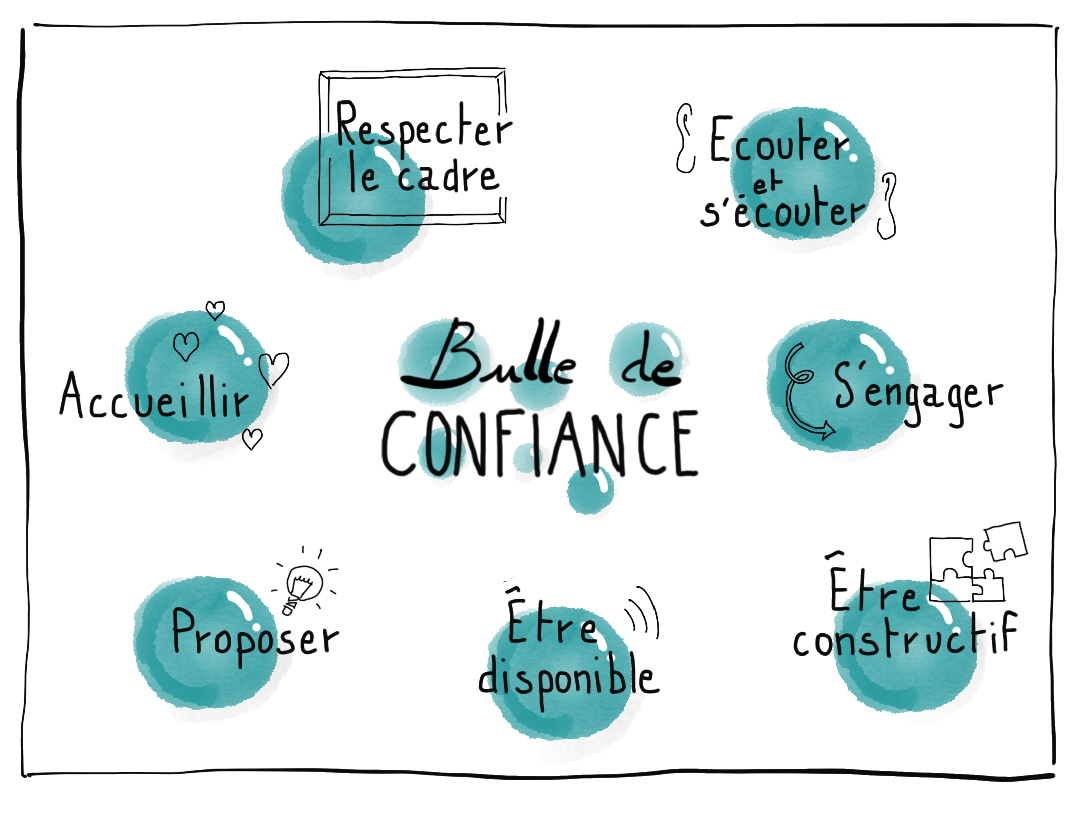 Respecter
le cadre
Ecouter
et
s'écouter
Accueillir
Bulle de
CONFIANCE
S'engager
Proposer
Être
disponible
Être
constructif